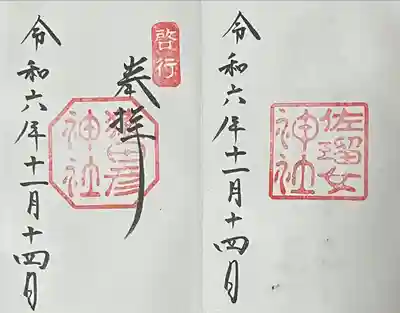 佐瑠女
神社
令和六年十一月十四日
啓行
奉拝
猿田彦
神社
令和六年十一月十四日